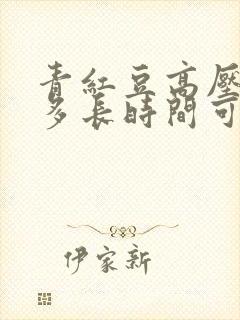 青紅豆高壓
多長時間可
伊家新